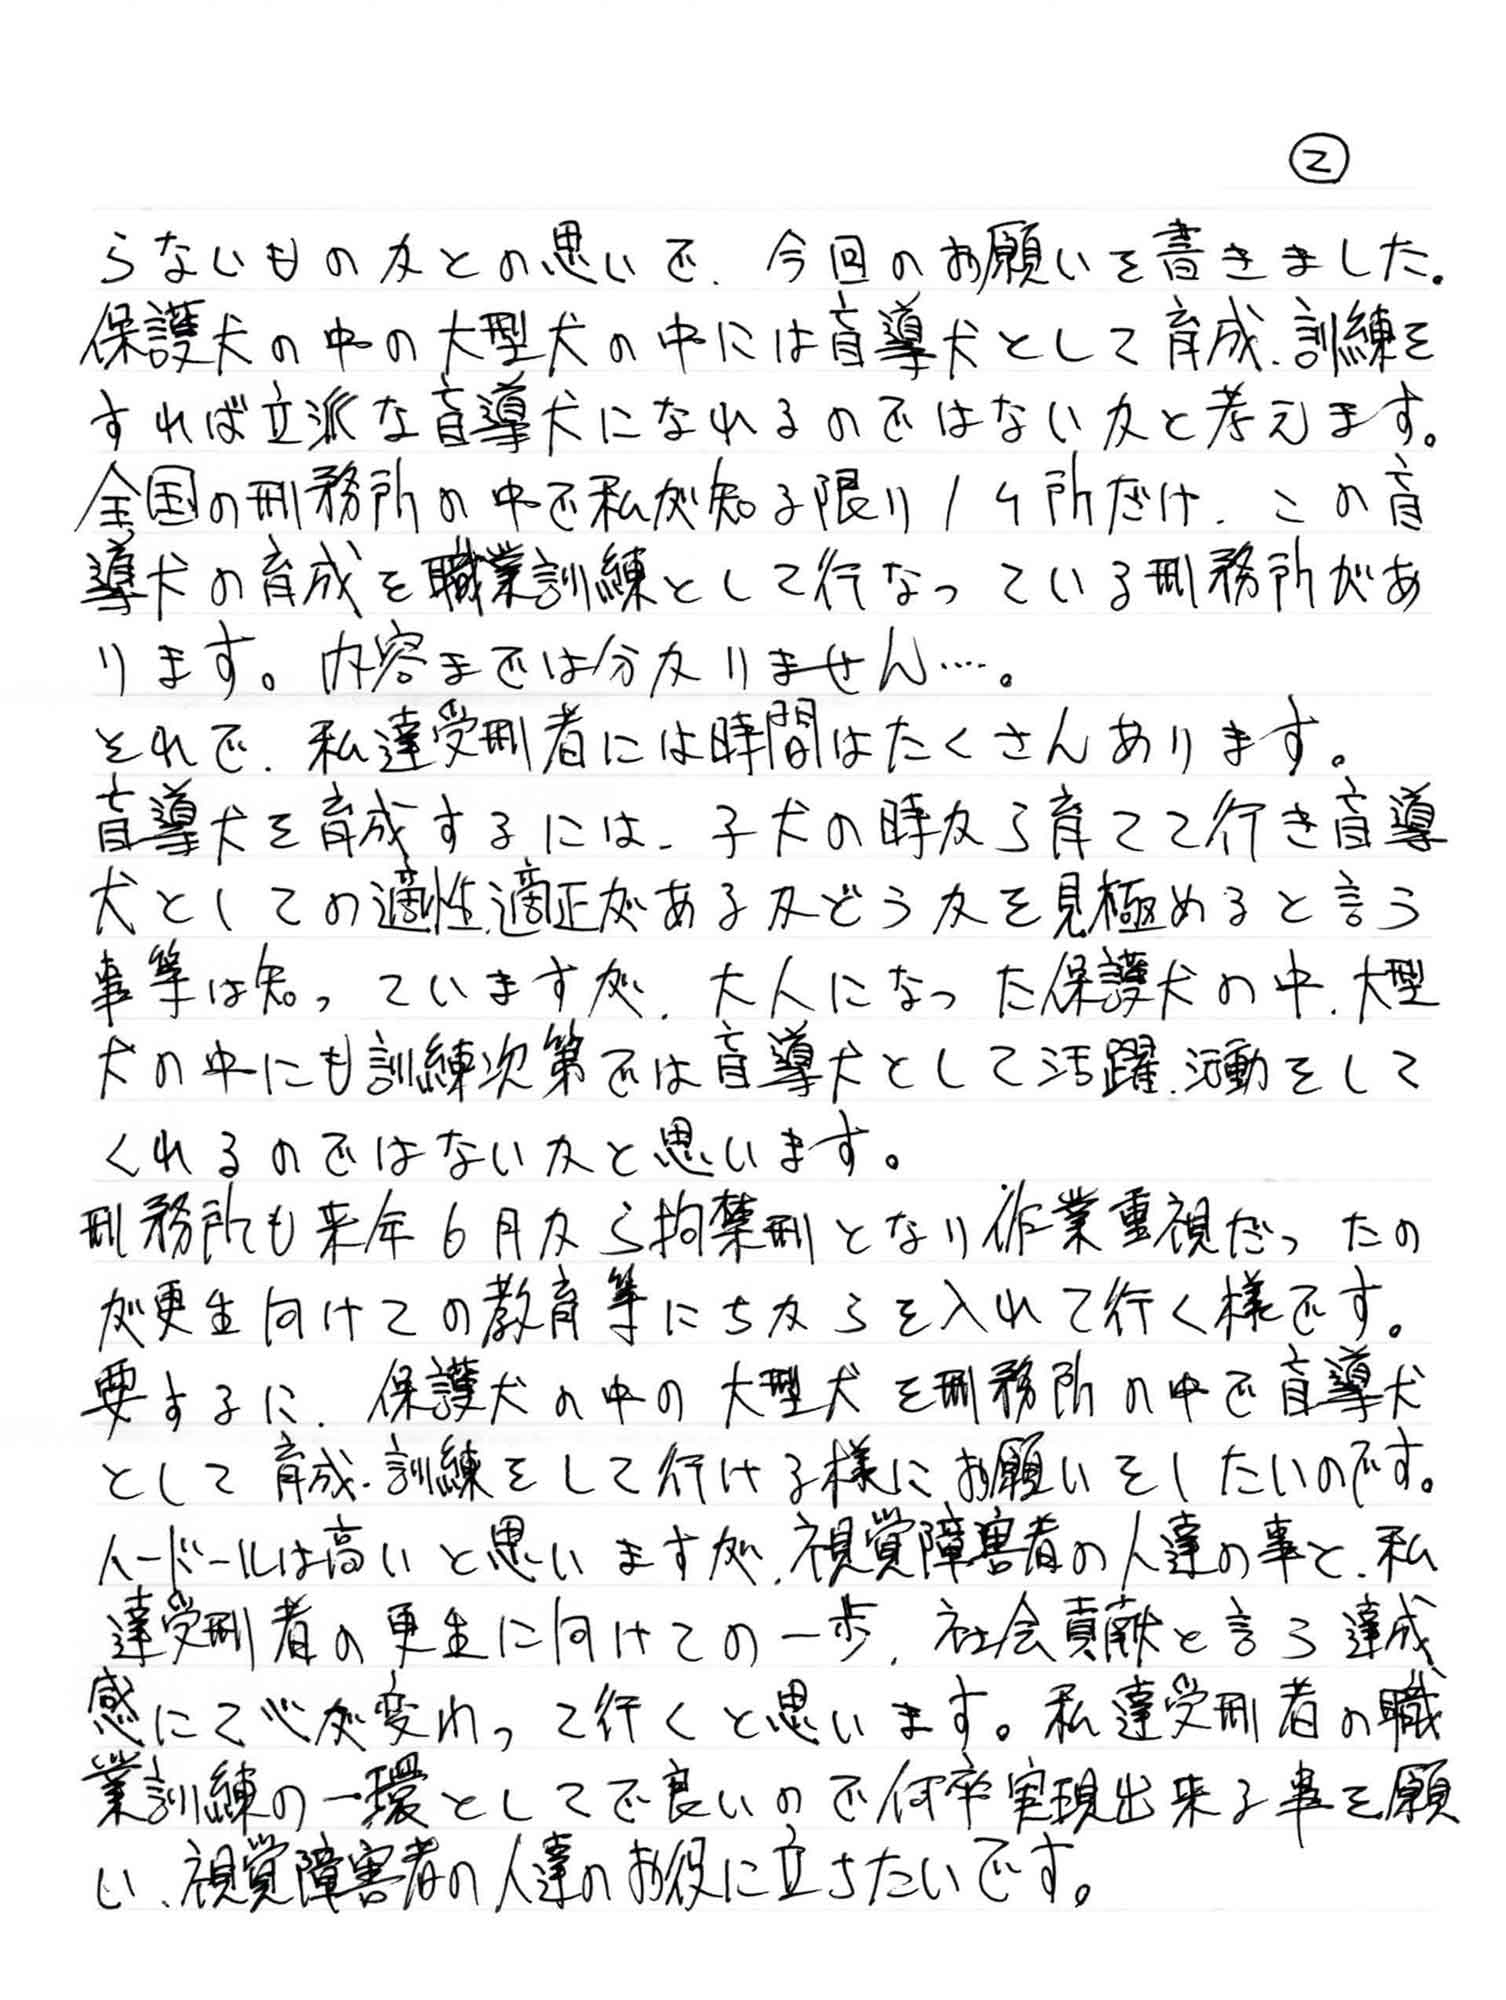 ②
らないものかとの思いで、今回のお願いを書きました。
保護犬の中の大型犬の中には盲導犬として育成、訓練を
すれば立派な盲導犬になれるのではないかと考えます。
全国の刑務所の中で私が知る限り1ヶ所だけ、この盲
導犬の育成を職業訓練として行なっている刑務所があ
ります。内容までは分かりません…。
それで、私達受刑者には時間はたくさんあります。
盲導犬を育成するには、子犬の時から育てて行き盲導
犬としての適性、適正があるかどうかを見極めると言う
事等は知っていますが、大人になった保護犬の中、大型
犬の中にも訓練次第では盲導犬として活躍、活動をして
くれるのではないかと思います。
刑務所も来年6月から拘禁刑となり作業重視だったの
が更生向けての教育等にちからを入れて行く様です。
要するに、保護犬の中の大型犬を刑務所の中で盲導犬
として育成、訓練をして行ける様にお願いをしたいのです。
ハードルは高いと思いますが、視覚障害者の人達の事と、私
達受刑者の更生に向けての一歩、社会貢献と言う達成
感にて心が変わって行くと思います。私達受刑者の職
業訓練の一環としてで良いので何卒実現出来る事を願
い、視覚障害者の人達のお役に立ちたいです。